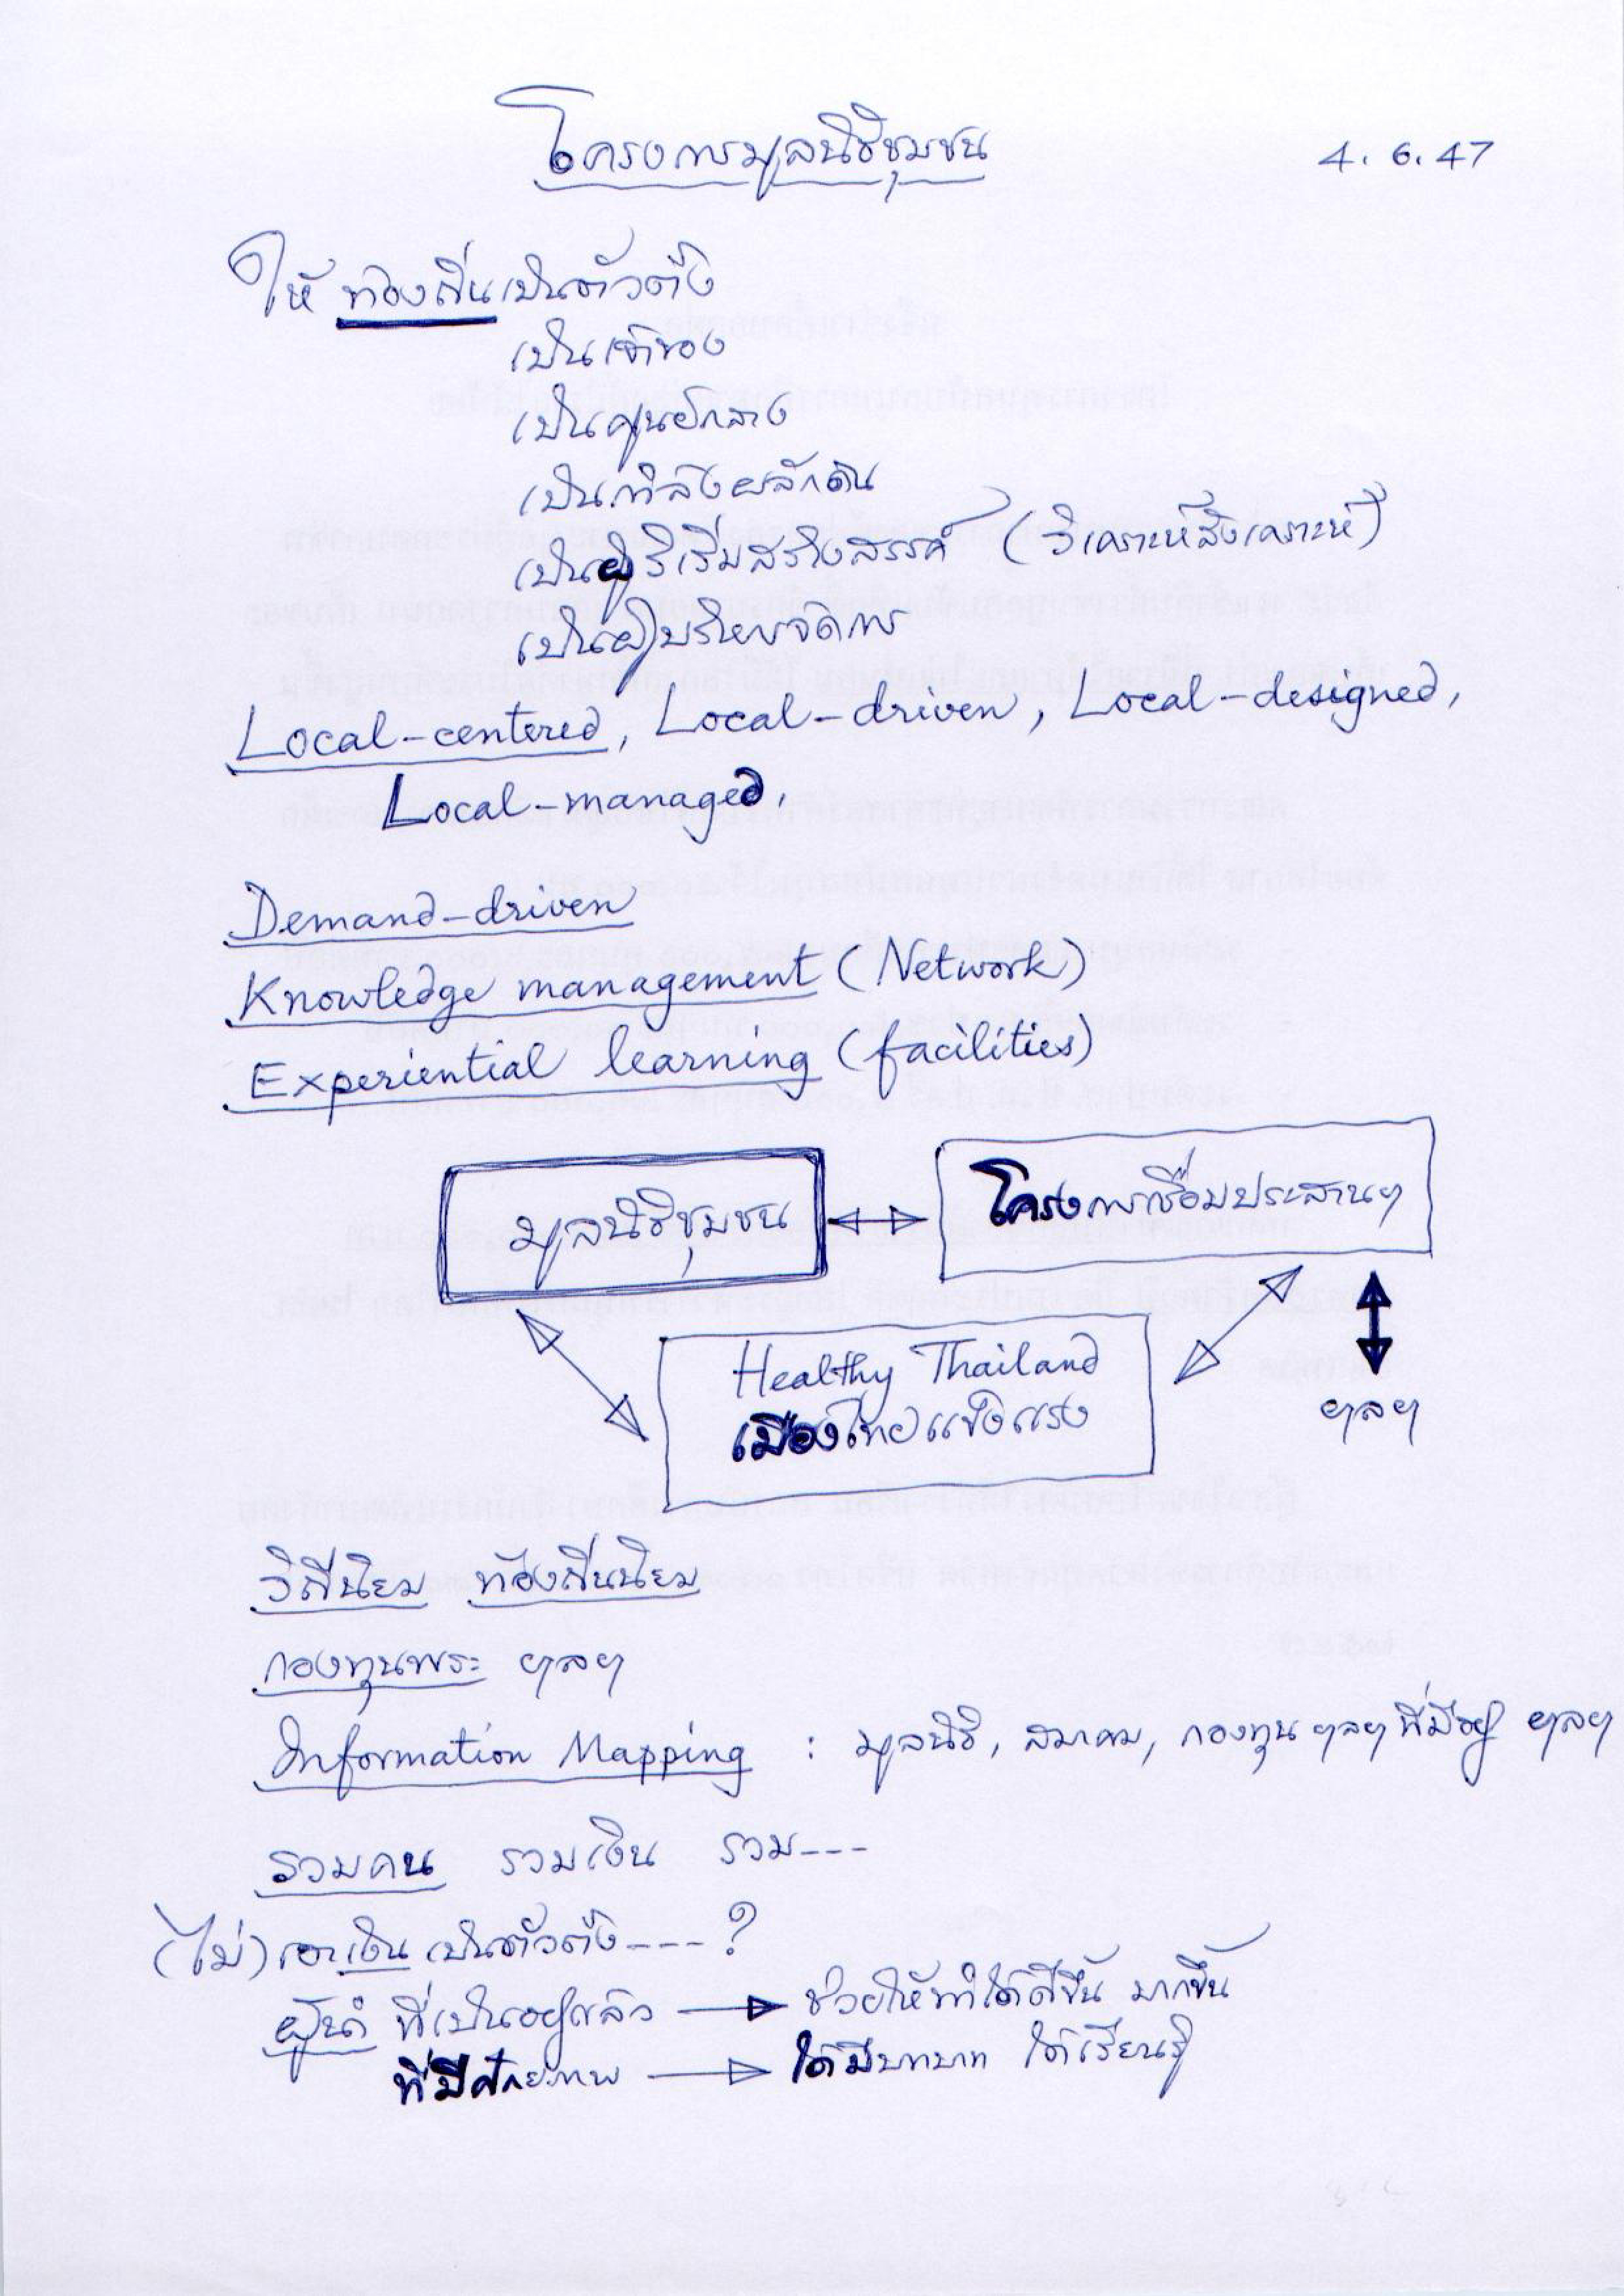 โครงการมูลนิธิชุมชน
4.6.47
ให้ท้องถิ่นเป็นตัวตั้ง
เป็นเจ้าของ
เป็นศูนย์กลาง
เป็นกำลังผลักดัน
เป็นผู้ริเริ่มสร้างสรรค์ (วิเคราะห์สังเคราะห์)
เป็นผู้บริหารจัดการ
Local-centered, Local-driven, Local-designed,
Local-managed,
Demand-driven
Knowledge management (Network)
Experiential learning (facilities)
มูลนิธิชุมชน
โครงการเชื่อมประสานฯ
Healthy Thailand
เมืองไทยแข็งแรง
ฯลฯ
วิถีนิยม ท้องถิ่นนิยม
กองทุนพระ ฯลฯ
Information Mapping : มูลนิธิ, สมาคม, กองทุน ฯลฯ ที่มีอยู่ ฯลฯ
รวมคน รวมเงิน รวม---
(ไม่) เอาเงิน เป็นตัวตั้ง----?
ผู้นำ ที่เป็นอยู่แล้ว → ช่วยให้ทำได้ดีขึ้น มากขึ้น
ที่มีศักยภาพ → ได้มีบทบาท ได้เรียนรู้